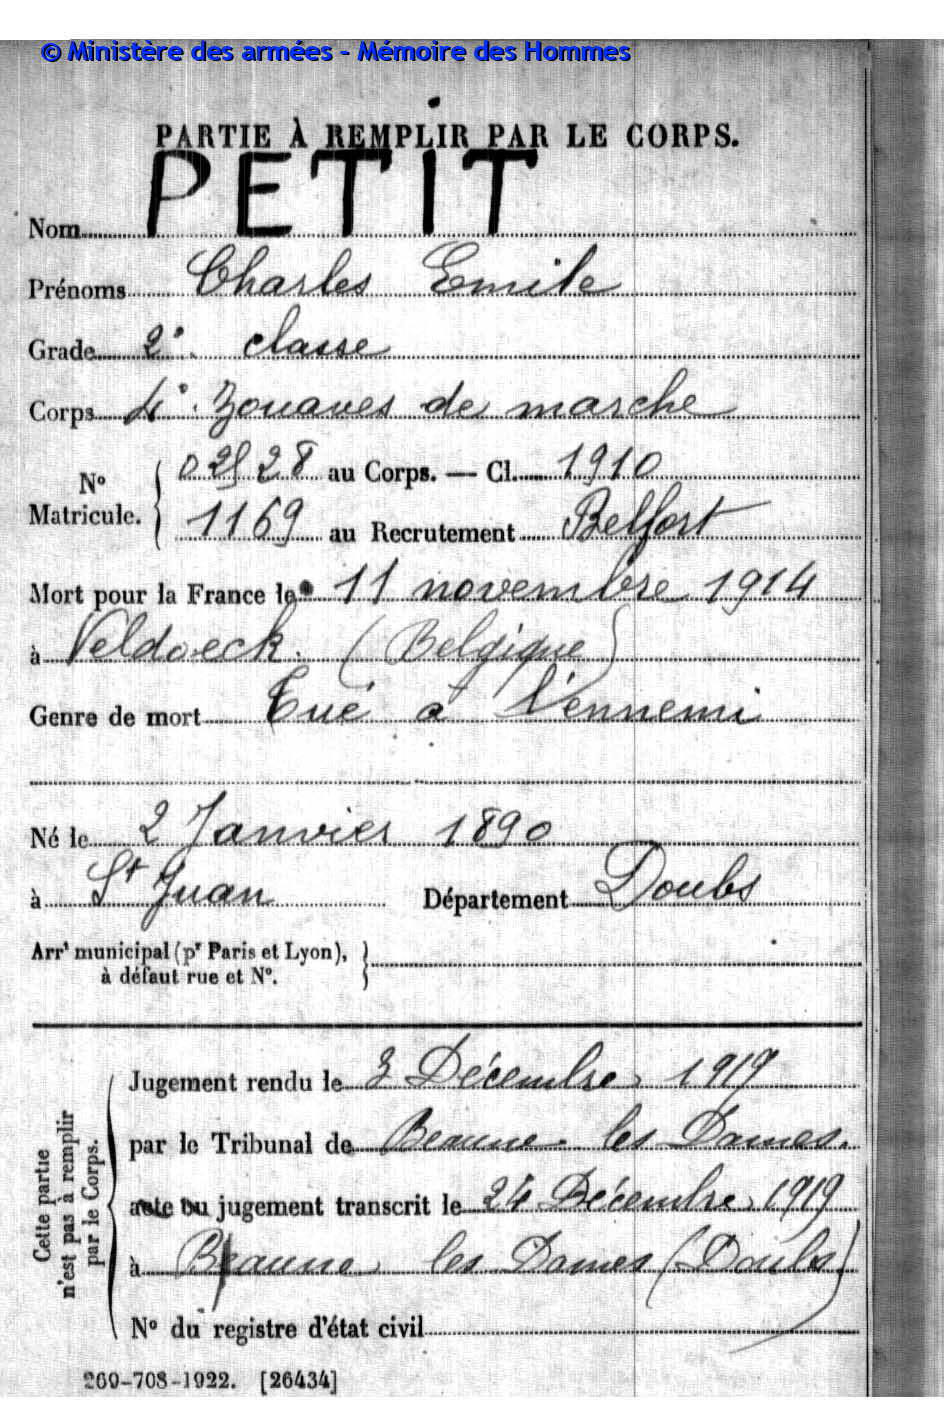 © Ministère des armées - Mémoire des Hommes
PARTIE À REMPLIR PAR LE CORPS.
Nom PETIT
Prénoms Charles Emile
Grade 2e. classe
Corps 4e. Zouaves de marche
No Matricule. 0 2528 au Corps. — Cl. 1910
1169 au Recrutement Belfort
Mort pour la France le 11 novembre 1914
à Veldoeck. (Belgique)
Genre de mort Tué à l'ennemi
Né le 2 Janvier 1890
à St Juan Département Doubs
Arrt municipal (pr Paris et Lyon),
à défaut rue et No.
Cette partie
n'est pas à remplir
par le Corps.
Jugement rendu le 3 Décembre 1919
par le Tribunal de Beaune les Dames.
acte ou jugement transcrit le 24 Décembre 1919
à Beaume les Dames (Doubs)
No du registre d'état civil
260-708-1922. [26434]